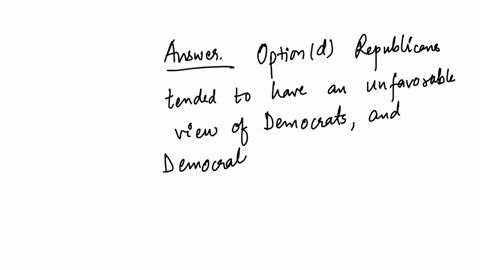 Answer. Option (d) Republicans
tended to have an unfavorable
view of Democrats, and
Democral